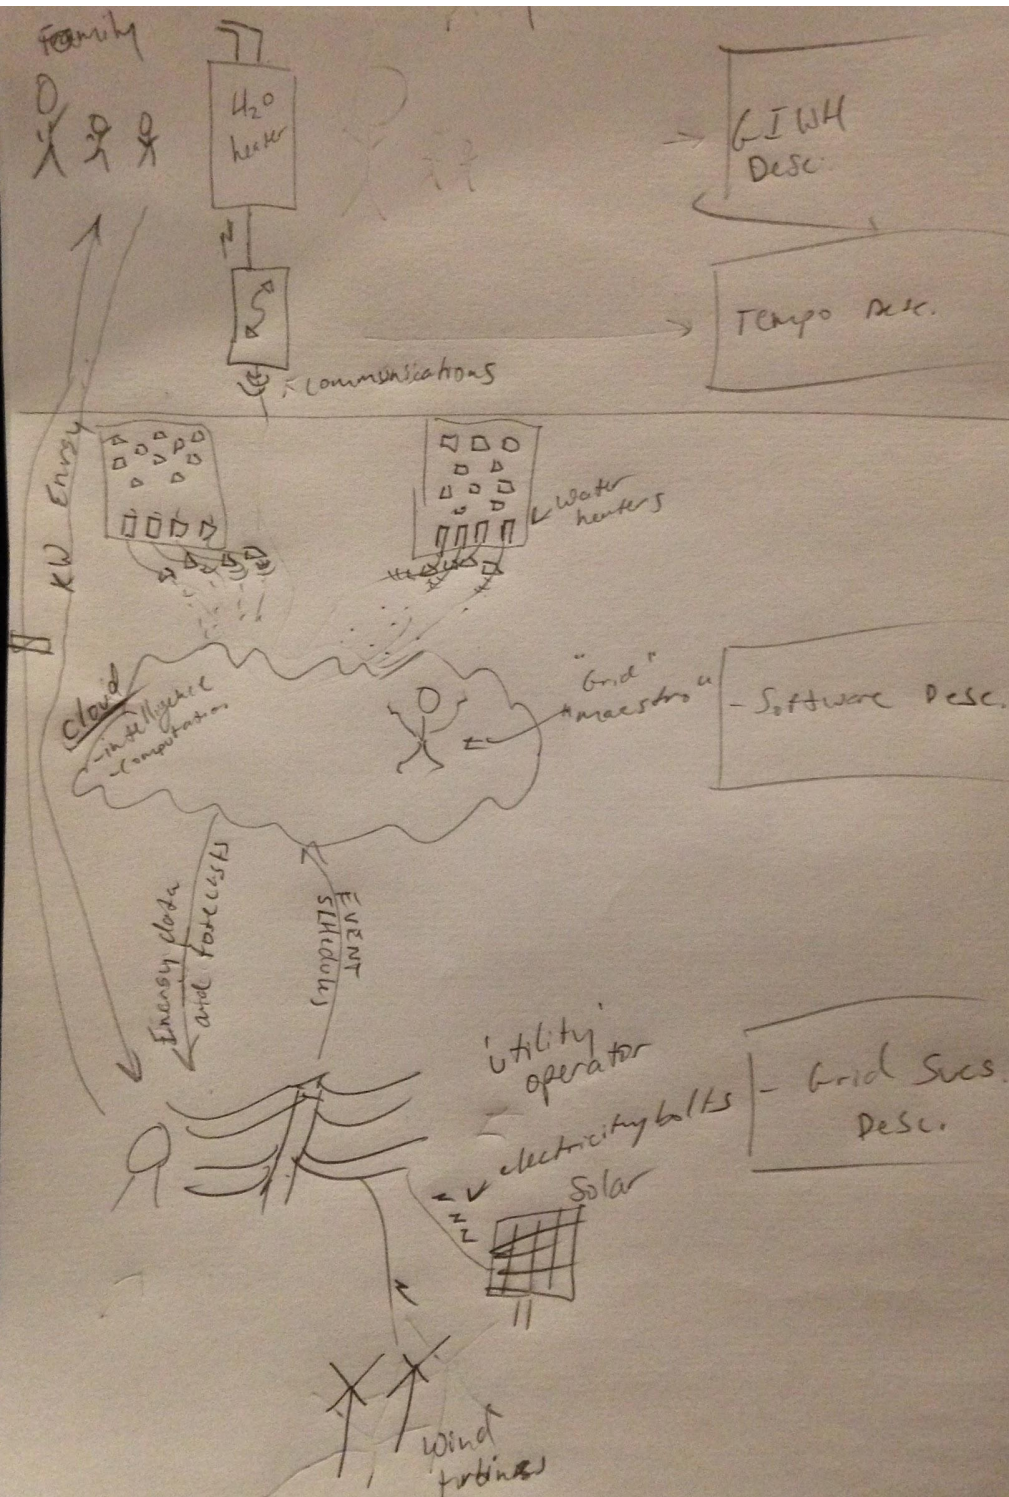 Family
H2O
heater
GIWH
Desc.
Tempo Desc.
communications
KW Energy
Water
heaters
cloud
-intelligence
-computation
"Grid"
"maestro"
- Software Desc.
Energy data
and forecasts
EVENT
SCHedules
'utility'
operator
electricity bolts
- Grid Svcs.
Desc.
Solar
Wind
turbines